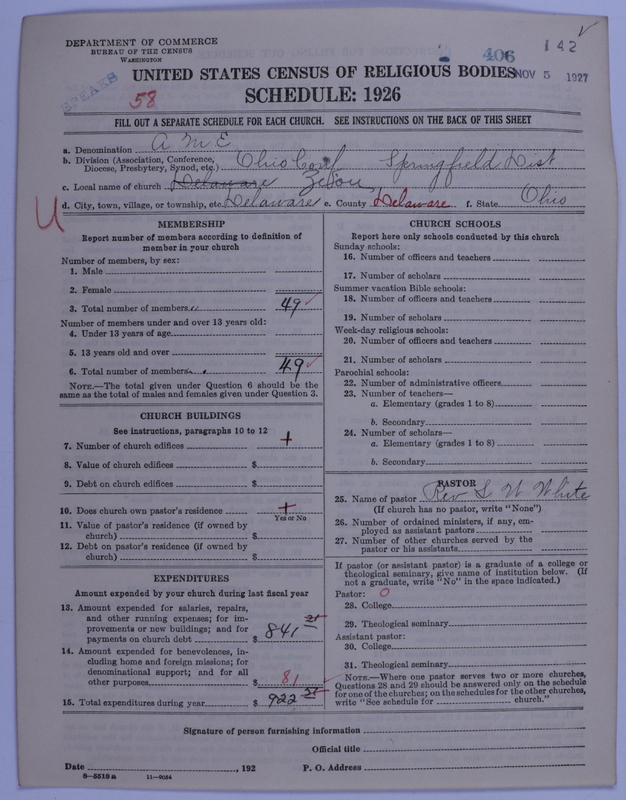 DEPARTMENT OF COMMERCE
BUREAU OF THE CENSUS
WASHINGTON
406
142
SPEAKS
UNITED STATES CENSUS OF RELIGIOUS BODIES
NOV 5 1927
58
SCHEDULE: 1926
FILL OUT A SEPARATE SCHEDULE FOR EACH CHURCH. SEE INSTRUCTIONS ON THE BACK OF THIS SHEET
a. Denomination A M E
b. Division (Association, Conference, Diocese, Presbytery, Synod, etc.) Ohio Conf Springfield Dist
c. Local name of church Delaware Zion
U
d. City, town, village, or township, etc. Delaware e. County Delaware f. State Ohio
MEMBERSHIP
Report number of members according to definition of
member in your church
Number of members, by sex:
1. Male
2. Female
3. Total number of members 49
Number of members under and over 13 years old:
4. Under 13 years of age
5. 13 years old and over
6. Total number of members 49
NOTE.—The total given under Question 6 should be the
same as the total of males and females given under Question 3.
CHURCH BUILDINGS
See instructions, paragraphs 10 to 12
7. Number of church edifices +
8. Value of church edifices $
9. Debt on church edifices $
10. Does church own pastor's residence +
Yes or No
11. Value of pastor's residence (if owned by
church) $
12. Debt on pastor's residence (if owned by
church) $
EXPENDITURES
Amount expended by your church during last fiscal year
13. Amount expended for salaries, repairs,
and other running expenses; for im-
provements or new buildings; and for
payments on church debt $ 841 21
14. Amount expended for benevolences, in-
cluding home and foreign missions; for
denominational support; and for all
other purposes $ 81
15. Total expenditures during year $ 922 21
CHURCH SCHOOLS
Report here only schools conducted by this church
Sunday schools:
16. Number of officers and teachers
17. Number of scholars
Summer vacation Bible schools:
18. Number of officers and teachers
19. Number of scholars
Week-day religious schools:
20. Number of officers and teachers
21. Number of scholars
Parochial schools:
22. Number of administrative officers
23. Number of teachers—
a. Elementary (grades 1 to 8)
b. Secondary
24. Number of scholars—
a. Elementary (grades 1 to 8)
b. Secondary
PASTOR
25. Name of pastor Rev S W White
(If church has no pastor, write "None")
26. Number of ordained ministers, if any, em-
ployed as assistant pastors
27. Number of other churches served by the
pastor or his assistants
If pastor (or assistant pastor) is a graduate of a college or
theological seminary, give name of institution below. (If
not a graduate, write "No" in the space indicated.)
Pastor: 0
28. College
29. Theological seminary
Assistant pastor:
30. College
31. Theological seminary
NOTE.—Where one pastor serves two or more churches,
Questions 28 and 29 should be answered only on the schedule
for one of the churches; on the schedules for the other churches,
write "See schedule for church."
Signature of person furnishing information
Official title
Date , 192 P. O. Address
8—5518a 11—9054